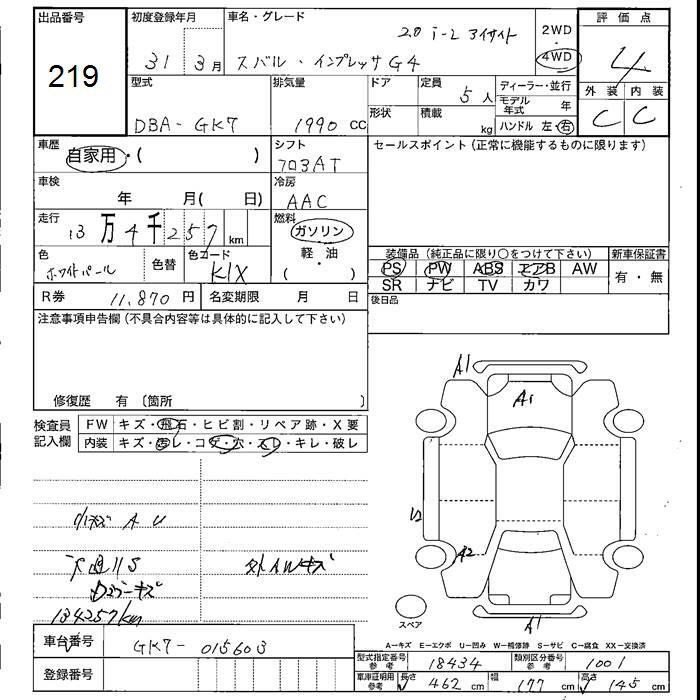 出品番号 初度登録年月 車名・グレード 2.0 i-L アイサイト 2WD 評価点
219 31 3月 スバル・インプレッサG4 4WD 4
型式 排気量 ドア 定員 5人 ディーラー・並行 外装 内装
DBA-GK7 1990 cc 形状 積載 kg モデル年式 年 C C
ハンドル 左・右
車歴 自家用・( ) シフト 7 03AT セールスポイント (正常に機能するものに限ります)
車検 年 月( 日) 冷房 AAC
走行 13万4千257km 燃料 ガソリン・軽油 ( )
色 ホワイトパール 色替 色コード K1X 装備品 (純正品に限り○をつけて下さい) 新車保証書
PS PW ABS エアB AW 有・無
SR ナビ TV カワ
R券 11,870円 名変期限 月 日 後日品
注意事項申告欄 (不具合内容等は具体的に記入して下さい)
修復歴 有 〔箇所 〕
検査員記入欄 FW キズ・飛石・ヒビ割・リペア跡・X要
内装 キズ・汚レ・コゲ・穴・スレ・キレ・破レ
A1
A1
小キズ A U
A2
下廻りS 外AWキズ
134257km
スペア
A1
A-キズ E-エクボ U-凹み W-補修跡 S-サビ C-腐食 XX-交換済
車台番号 GK7-015603
型式指定番号 参考 18434 類別区分番号 参考 1001
登録番号 車庫証明用 参考 長さ 462 cm 幅 177 cm 高さ 145 cm